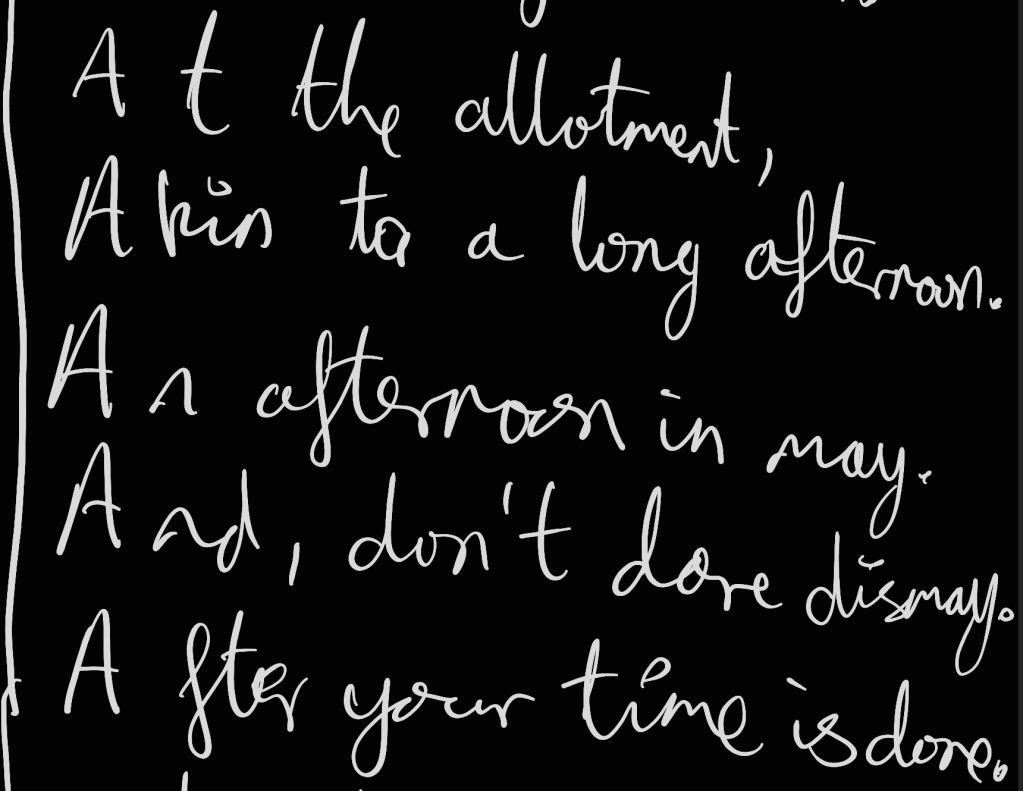 At the allotment,
Akin to a long afternoon.
An afternoon in may.
And, don't dare dismay.
After your time is done.